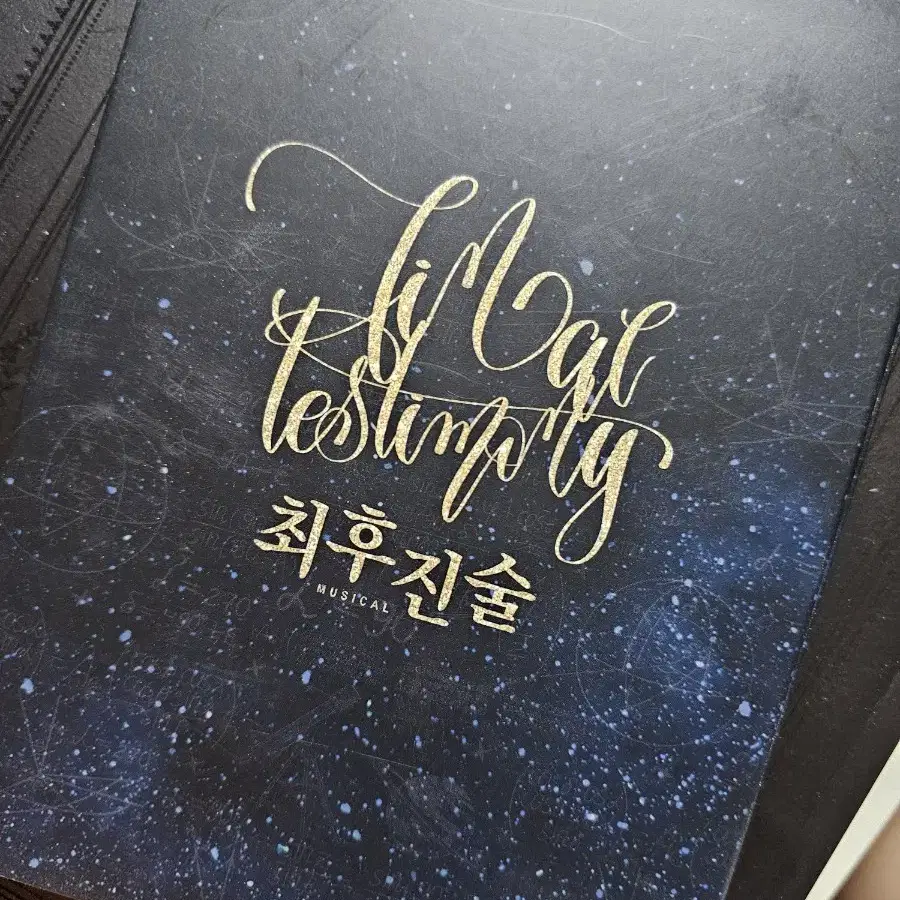 final
testimony
최후진술
MUSICAL